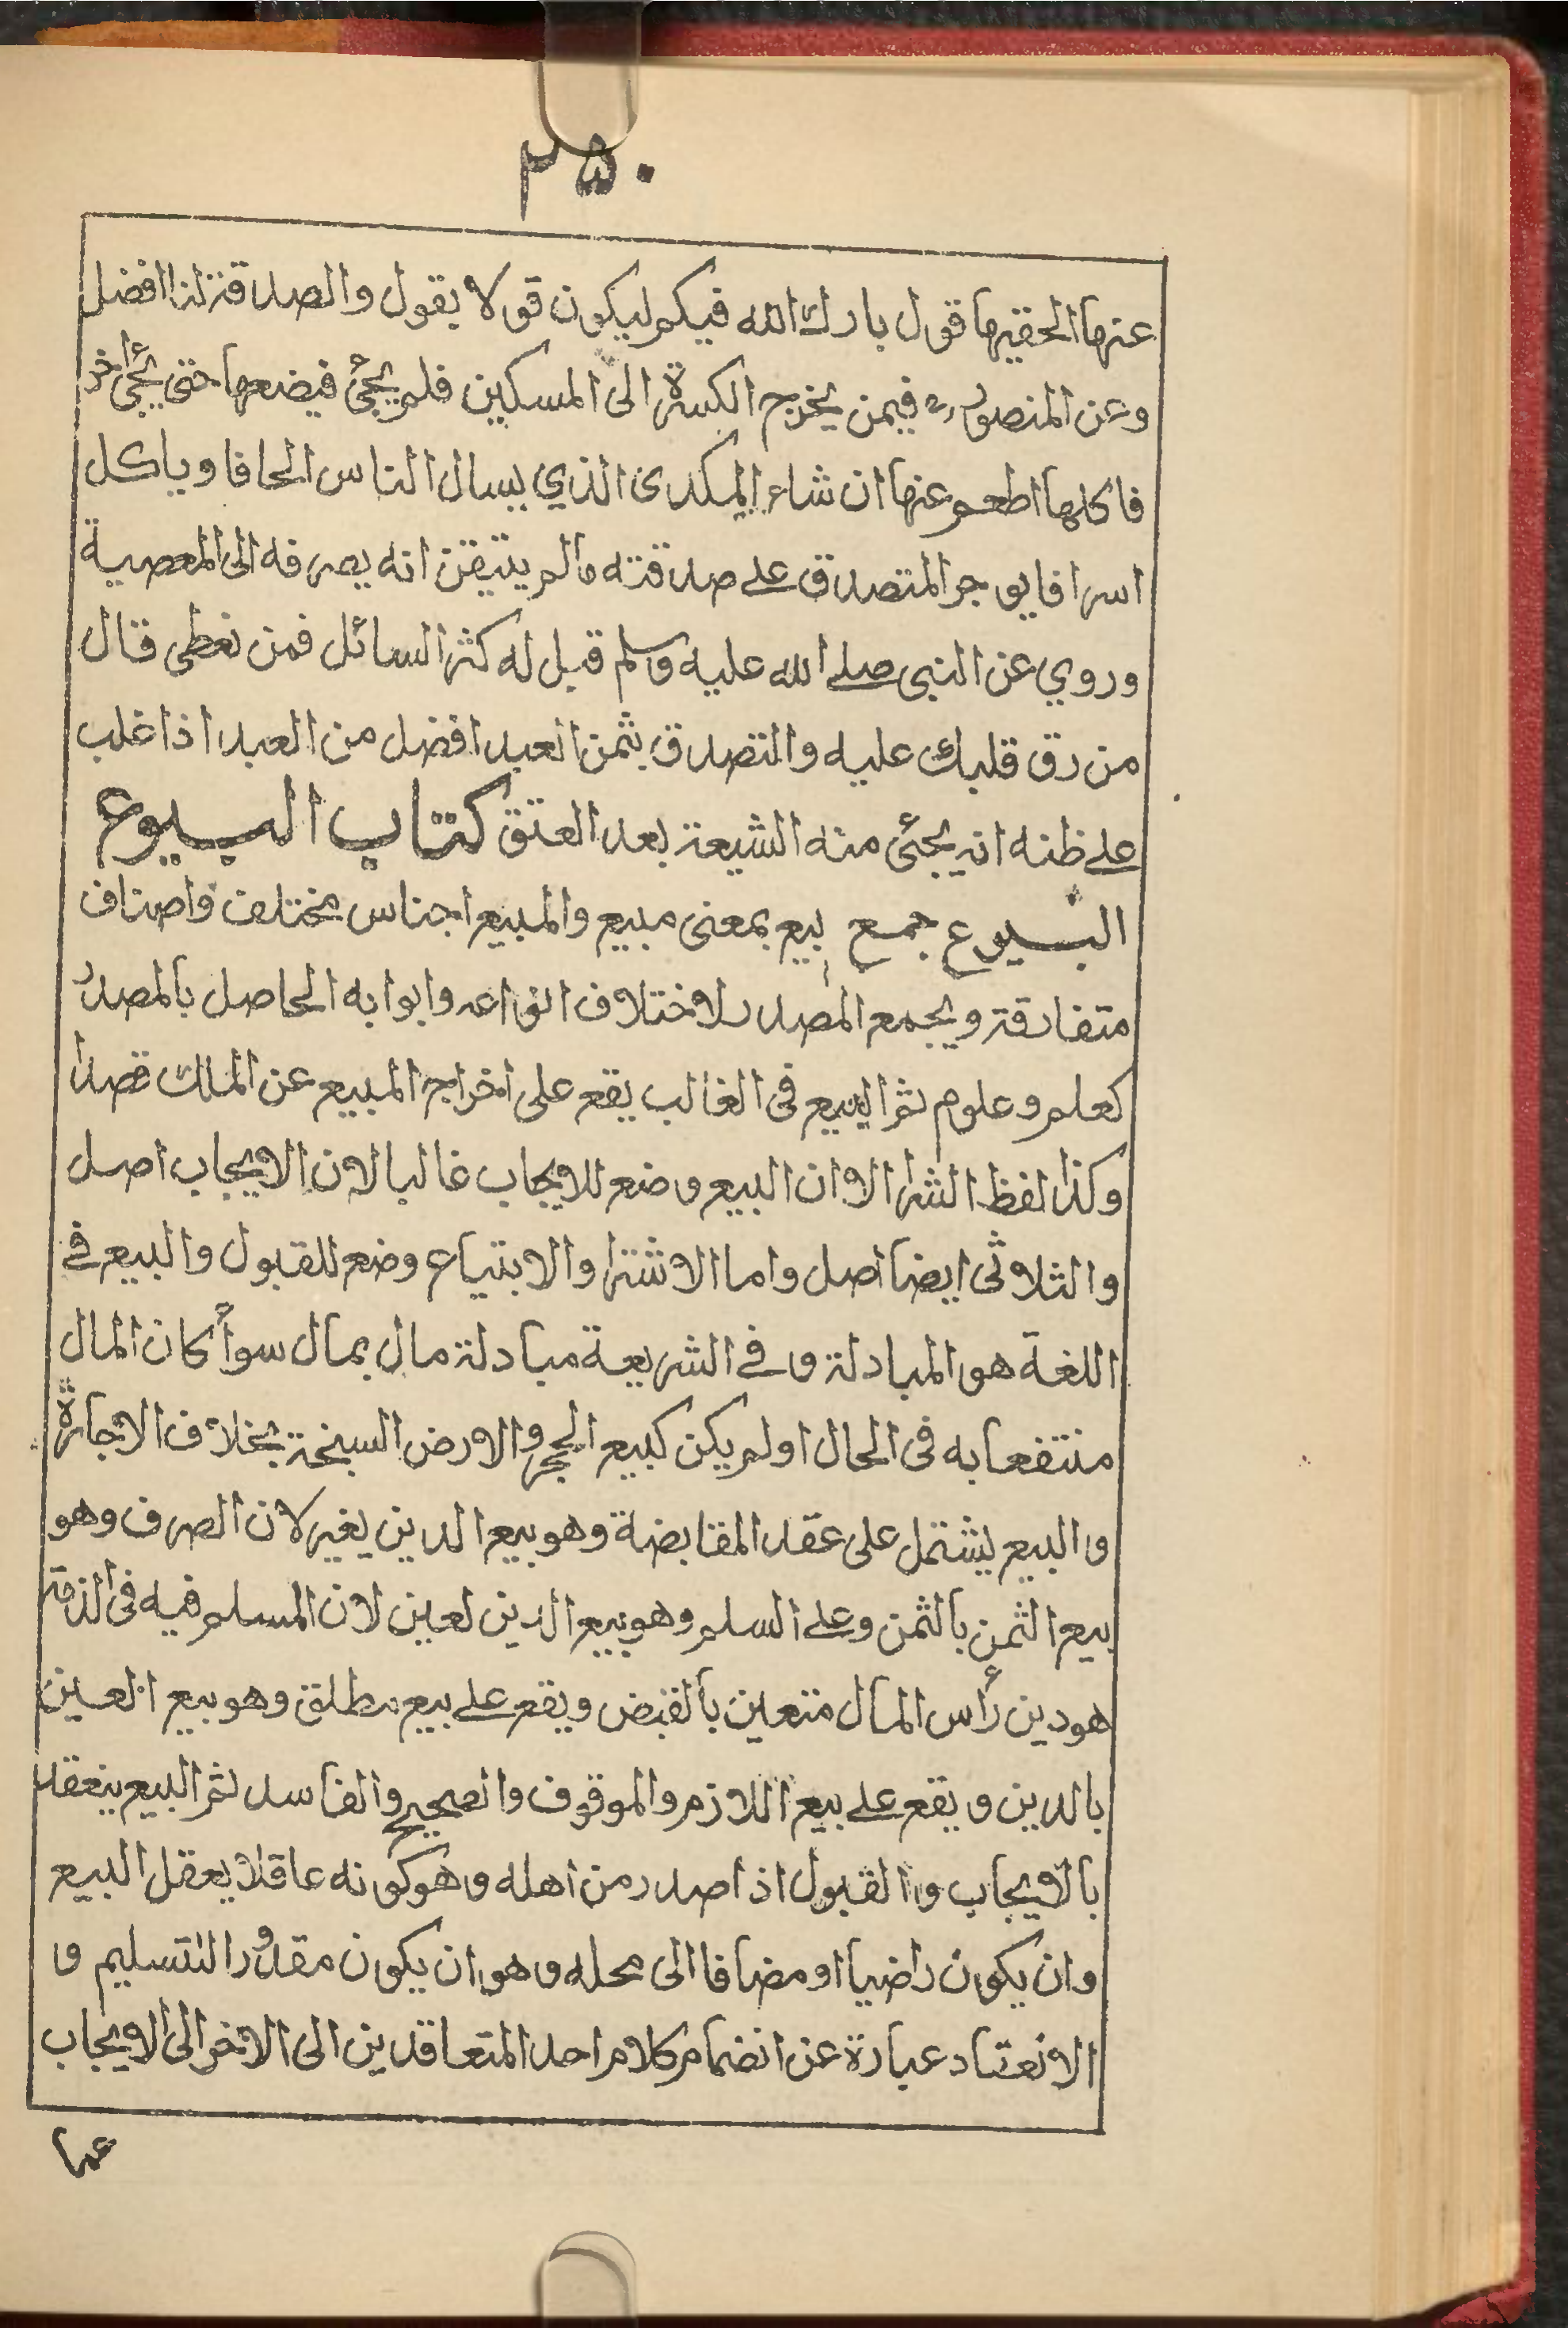 ٢٥٠
عنها الحقيها قول بارك الله فيكم ليكون قولا يقول والصدقة لنا افضل
وعن المنصور فيمن يخرج الكسرة الى المسكين فلم يجئ فيضعها حتى يجئ اخر
فاكلها اطعم عنها ان شاء المكدى الذي يسال الناس الحافا وياكل
اسرافا يوجر المتصدق على صدقته مالم يتيقن انه يصرفه الى المعصية
وروي عن النبى صلى الله عليه وسلم قيل له كثر السائل فمن نعطى قال
من رق قلبك عليه والتصدق بثمن العبد افضل من العبد اذا غلب
على ظنه انه يجئ منه الشيعة بعد العتق كتاب البيوع
البيوع جمع بيع بمعنى مبيع والمبيع اجناس مختلف واصناف
متفارقة ويجمع المصدر لاختلاف انواعه وابوابه الحاصل بالمصدر
كعلم وعلوم ثم البيع فى الغالب يقع على اخراج المبيع عن الملك قصدا
وكذا لفظ الشرا الا ان البيع وضع للايجاب غالبا لان الايجاب اصل
والثلاثى ايضا اصل واما الاشترا والابتياع وضع للقبول والبيع فى
اللغة هو المبادلة وفى الشريعة مبادلة مال بمال سوأ كان المال
منتفعا به فى الحال اولم يكن كبيع الحجر والارض السبخة بخلاف الاجارة
والبيع يشتمل على عقد المقابضة وهو بيع الدين يغير لان الصرف وهو
بيع الثمن بالثمن وعلى السلم وهو بيع الدين لعين لان المسلم فيه فى الذمة
هو دين رأس المال متعين بالقبض ويقع على بيع مطلق وهو بيع العين
بالدين ويقع على بيع اللازم والموقوف والصحيح والفاسد ثم البيع ينعقد
بالايجاب والقبول اذا صدر من اهله وهو كونه عاقلا يعقل البيع
وان يكون راضيا او مضافا الى محله وهو ان يكون مقدور التسليم و
الانعقاد عبارة عن انضمام كلام احد المتعاقدين الى الاخر الى الايجاب